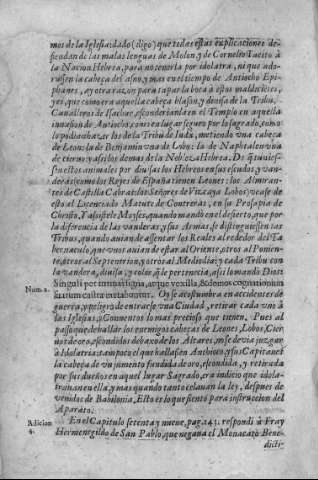 mos de la Iglesia: dado (digo) que todas estas explicaciones de-
fiendan de las malas lenguas de Molon, y de Cornelio Tacito à
la Nacion Hebrea, para no tenerla por idolatra, ni que ado-
rassen la cabeça del asno, y mas en el tiempo de Antiocho Epi-
phanes, ay otra razon para tapar la boca à estos maldicientes,
y es, que como era aquella cabeça blason, y deuisa de la Tribu,
Caualleros de Isachar, esconderianla en el Templo en aquella
inuasion de Antiocho, como en lugar seguro por lo sagrado, como
lo podian hazer los de la Tribu de Iudà, metiendo vna cabeça
de Leon: la de Benjamin vna de Lobo: la de Naphtalen vna
de cieruo: y assi los demas de la Nobleza Hebrea. De que vuies-
sen estos animales por diuisas los Hebreos en sus escudos, y van-
deras (como los Reyes de España tienen Leones: los Almiran-
tes de Castilla Cabras: los Señores de Vizcaya Lobos) vease de
esto al Licenciado Matute de Contreras, en su Prosapia de
Christo, Y assi pues Moyses, quando mandò en el desierto, que por
la diferencia de las vanderas, y sus Armas se distinguiessen las
Tribus, quando auian de assentar los Reales al rededor del Ta-
bernaculo, que vnos auian de estar al Oriente, otros al Ponien-
te, otros al Septentrion, y otros al Mediodia: y cada Tribu con
la vandera, diuisa, y color, que le pertenecia, assi lo mandò Dios:
Num. 2. Singuli per turmas, signa, atque vexilla, & domos cognationum
suarum castrametabuntur. Oy se acostumbra en accidentes de
guerra, y peligro de entrarse vna Ciudad, retirar cada vno à
las Iglesias, ò Conuentos lo mas precioso que tienen. Pues al
passo que de hallar los enemigos cabeças de Leones, Lobos, Cier-
uos de oro, escondidos debaxo de los Altares, no se deuia juzgar
à Idolatria: tampoco el que hallasen Anthioco, y sus Capitanes
la cabeça de vn jumento fundida de oro, escondida, y retirada
por sus dueños en aquel lugar Sagrado, era indicio que idola-
trauan en ella, y mas quando tanto celauan la ley, despues de
venidos de Babilonia, Esto es lo que siento para instruccion del
Aparato.
Adicion 4. En el Capitulo setenta y nueue, pag. 243. respondi à Fray
Hermenegildo de San Pablo, que negaua el Monacato Bene-
dicti-